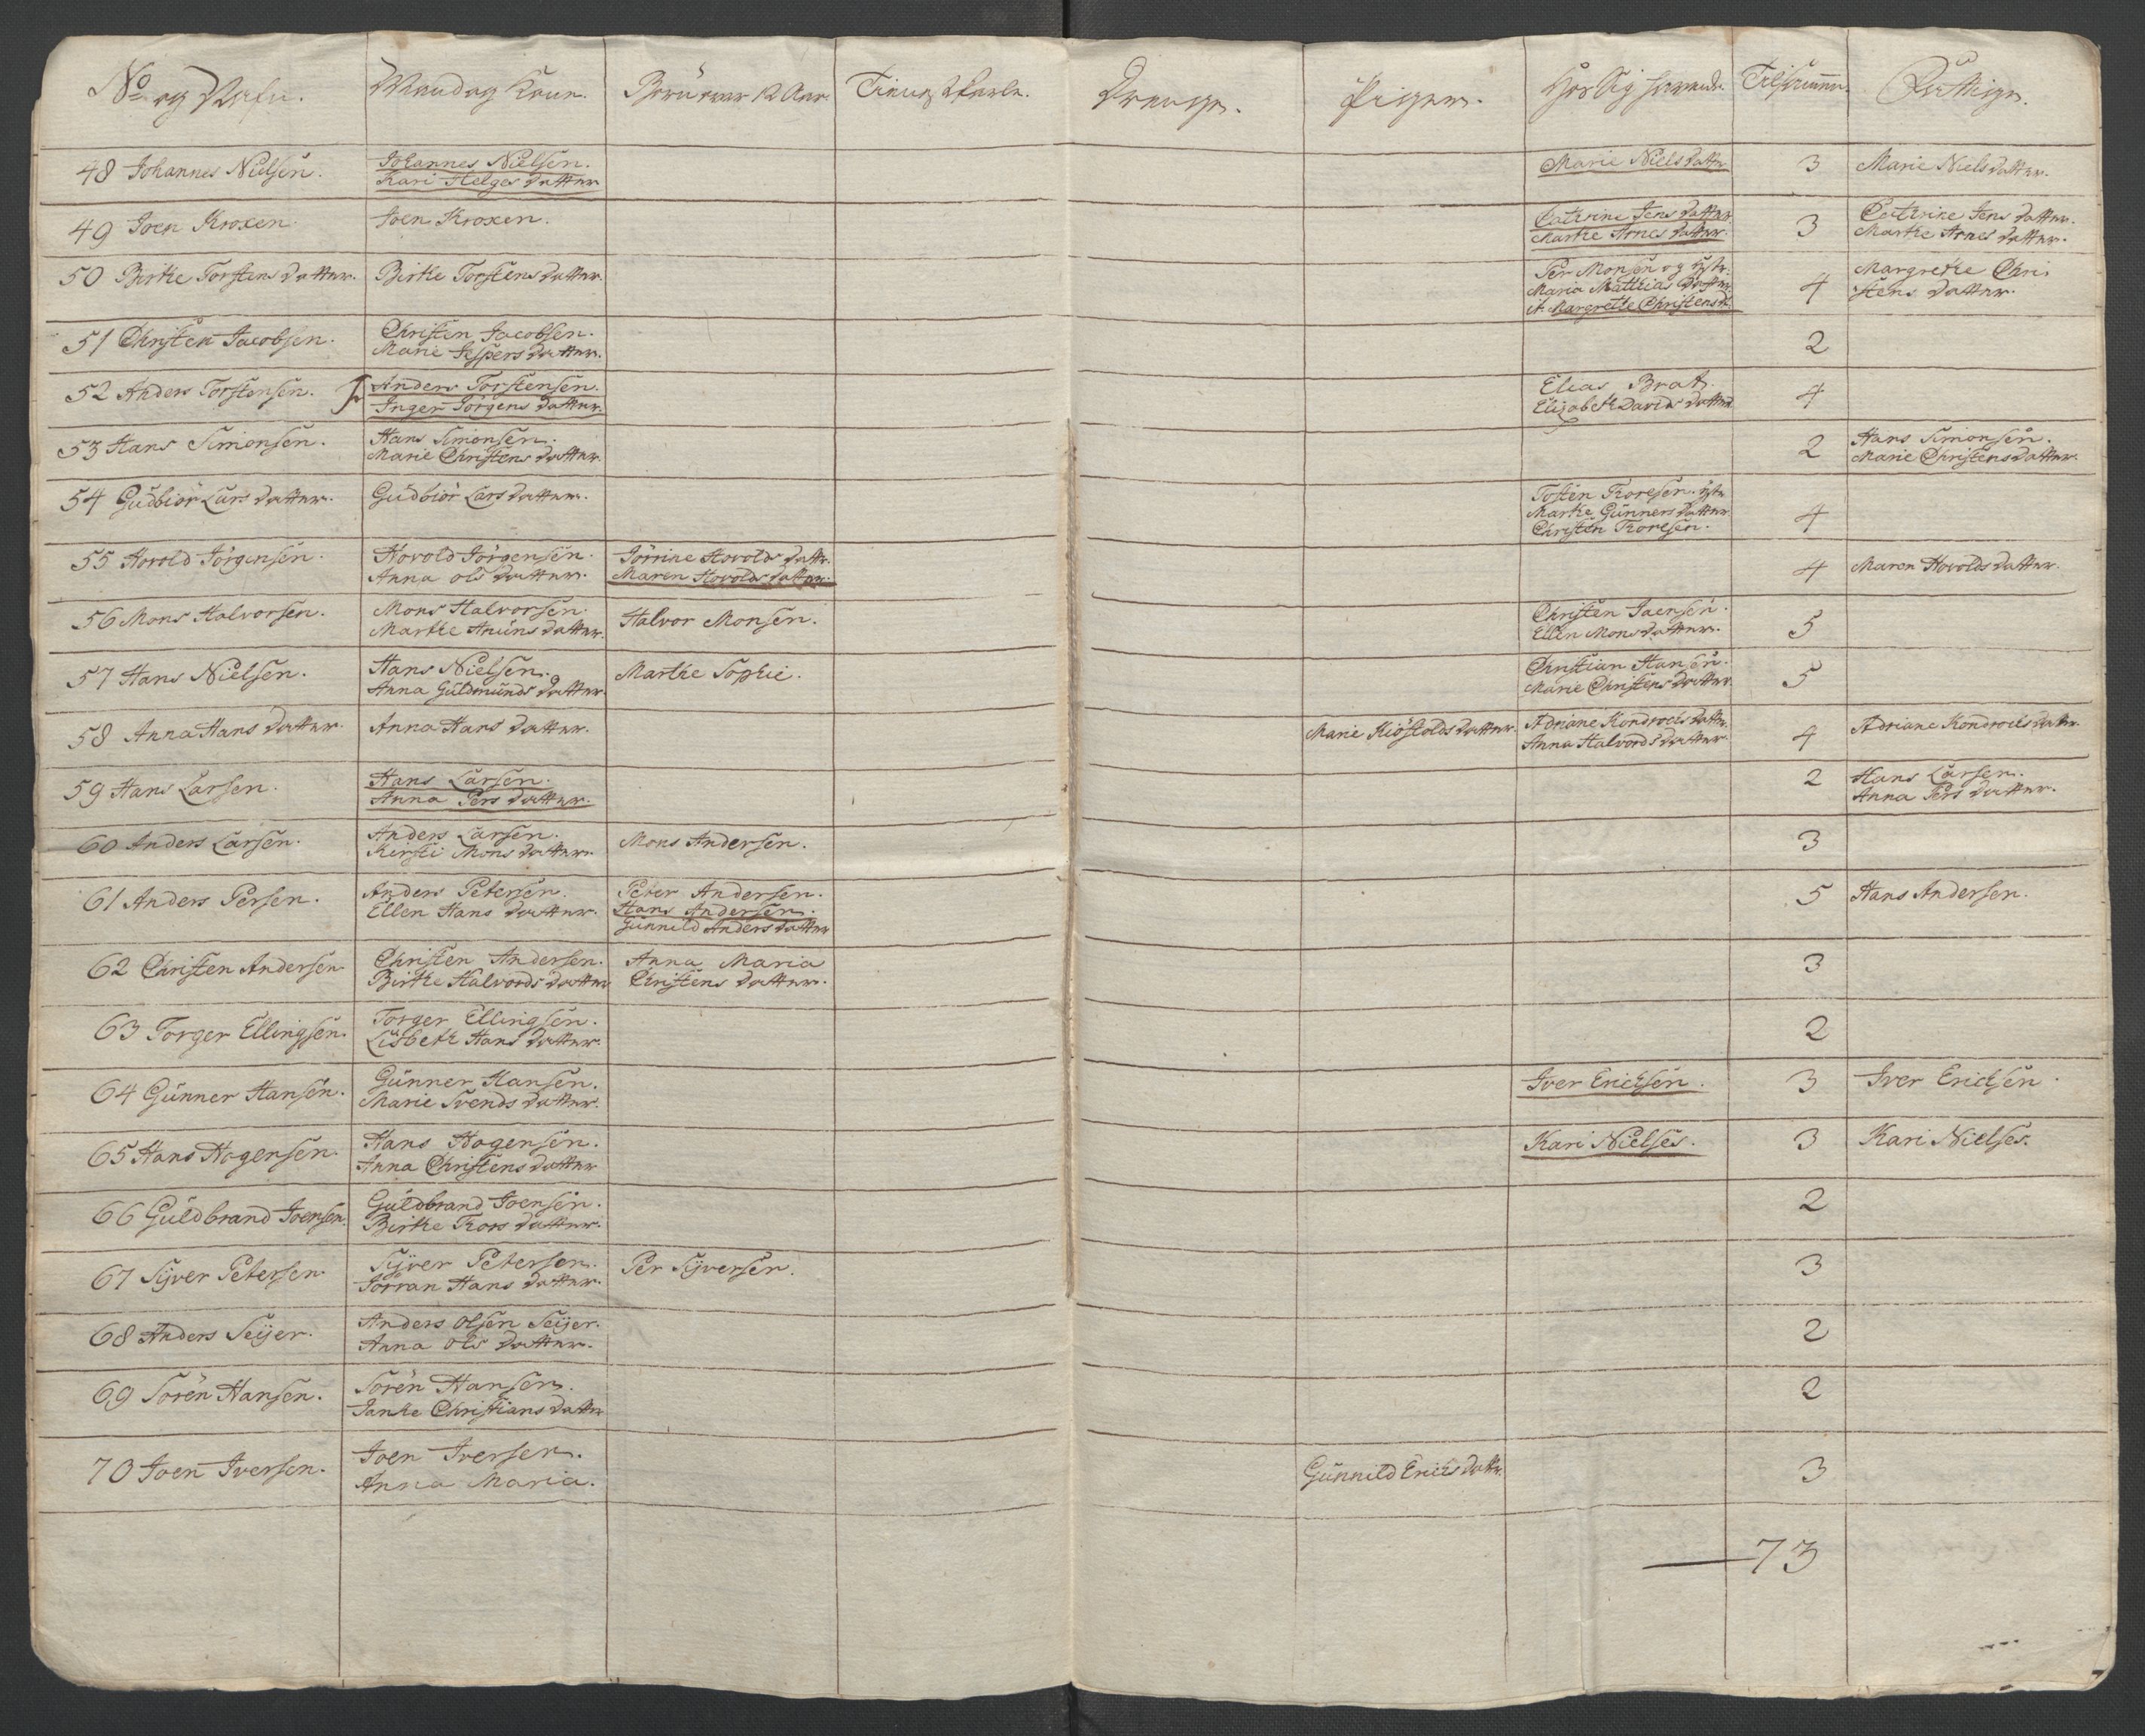 No og Nafn. Mand og Kone. Börn over 12 Aar. Tieneste Karle. Drenge. Piger. Hos Sig havende. Tilsammen. Fattige.
48 Johannes Nielsen. Johannes Nielsen. Marie Nielsdatter 3 Marie Nielsdatter.
Kari Helges datter
49 Joen Kroxen. Joen Kroxen. Cathrine Jens datter 3 Cathrine Jens datter.
Marthe Arnes datter. Marthe Arnes datter.
50 Birthe Torstens datter. Birthe Torstens datter. Per Monsen og 4 Margrethe Chri
Maria Matthias datter stens datter.
Margrethe Christens
51 Christen Jacobsen. Christen Jacobsen. 2
Marie Jespers datter.
52 Anders Torstensen. Anders Torstensen. Elias Brat. 4
Inger Jörgens datter. Elizabeth Davids datter
53 Hans Simonsen. Hans Simonsen. 2 Hans Simonsen.
Marie Christens datter. Marie Christensdatter.
54 Gudbiör Lars datter. Gudbiör Lars datter. Tosten Thoresen. 4
Marthe Gunners datter
Christen Thoresen.
55 Hovold Jörgensen. Hovold Jörgensen. Jörrine Hovolds datter. 4 Maren Hovolds datter.
Anna Ols datter. Maren Hovolds datter.
56 Mons Halvorsen. Mons Halvorsen. Halvor Monsen. Christen Jaensen. 5
Marthe Anuns datter. Ellen Mons datter.
57 Hans Nielsen. Hans Nielsen. Marthe Sophie. Christian Hansen. 5
Anna Guldmunds datter. Marie Christens datter.
58 Anna Hans datter. Anna Hans datter. Marie Kiöstolds datter. Adriane Kondrocks datter. 4 Adriane Kondrocks datter.
Anna Halvords datter.
59 Hans Larsen. Hans Larsen. 2 Hans Larsen.
Anna Pers datter. Anna Pers datter.
60 Anders Larsen. Anders Larsen. Mons Andersen. 3
Kirsti Mons datter.
61 Anders Persen. Anders Petersen. Peter Andersen. 5 Hans Andersen.
Ellen Hans datter. Hans Andersen.
Gunnild Anders datter
62 Christen Andersen Christen Andersen. Anna Maria 3
Birthe Halvords datter Christens datter.
63 Torger Ellingsen. Torger Ellingsen. 2
Lisbeth Hans datter.
64 Gunner Hansen. Gunner Hansen. Iver Erichsen. 3 Iver Erichsen.
Marie Svends datter.
65 Hans Hogensen. Hans Hogensen. Kari Nielses. 3 Kari Nielses.
Anna Christens datter
66 Guldbrand Joensen. Guldbrand Joensen. 2
Birthe Thors datter.
67 Syver Petersen Syver Petersen. Per Syversen. 3
Jörran Hans datter.
68 Anders Seijer. Anders Olsen Seijer. 2
Anna Ols datter.
69 Sören Hansen. Sören Hansen. 2
Janke Christians datter
70 Joen Iversen. Joen Iversen. Gunnild Erichs datter. 3
Anna Maria.
73